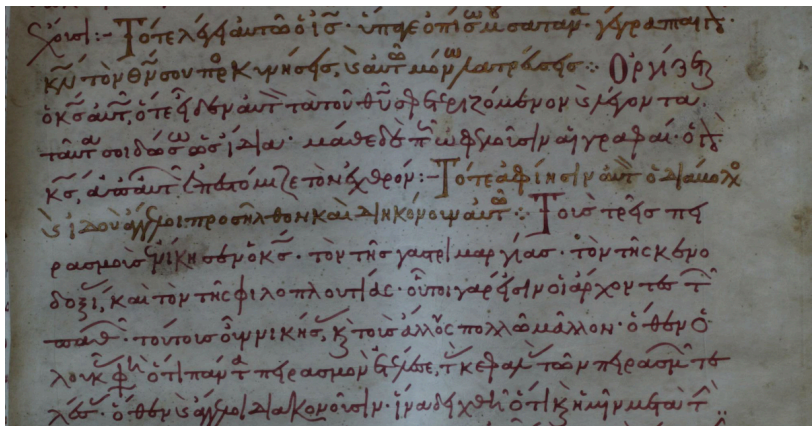 Τότε λέγει αὐτῶ ὁ ἰς· ὕπαγε ὀπίσω μου σατανᾶ· γέγραπται γάρ·
κν τὸν θν σου προσκυνήσεις, καὶ αὐτῶ μόνω λατρεύσεις: Ὀργίζεται
ὁ κς αὐτῶ, ὅτε εἶδεν αὐτὸν τὰ τοῦ θυ σφετεριζόμενον καὶ λέγοντα
ταῦτα σοι δώσω ὡς ἴδια· μάθε δὲ πῶς ὠφελοῦσιν αἱ γραφαί· ὁ γὰρ
κς, ἀπὸ αὐτῶν ἐπεστόμιζε τὸν ἐχθρόν:- Τότε ἀφίησιν αὐτὸν ὁ διάβολος
καὶ ἰδοὺ ἄγγελοι προσῆλθον καὶ διηκόνουν αὐτῶ: Τοὺς τρεῖς πει
ρασμοὺς ἐνίκησεν ὁ κς· τὸν τῆς γαστριμαργίας· τὸν τῆς κενο
δοξίας, καὶ τὸν τῆς φιλοπλουτίας· οὗτοι γάρ εἰσιν οἱ ἄρχοντες τῶν
παθῶν· τούτους οὖν νικήσας, καὶ τοὺς ἄλλους πολλῶ μᾶλλον· ὅθεν ὁ
λουκᾶς φησὶν ὅτι πάντα πειρασμὸν ἐτέλεσε, τὰς κεφαλὰς τῶν πειρασμῶν τε
λέσας· ὅθεν καὶ ἄγγελοι διακονοῦσιν· ἵνα δειχθῆ ὅτι καὶ ἡμῖν μετὰ τὴν